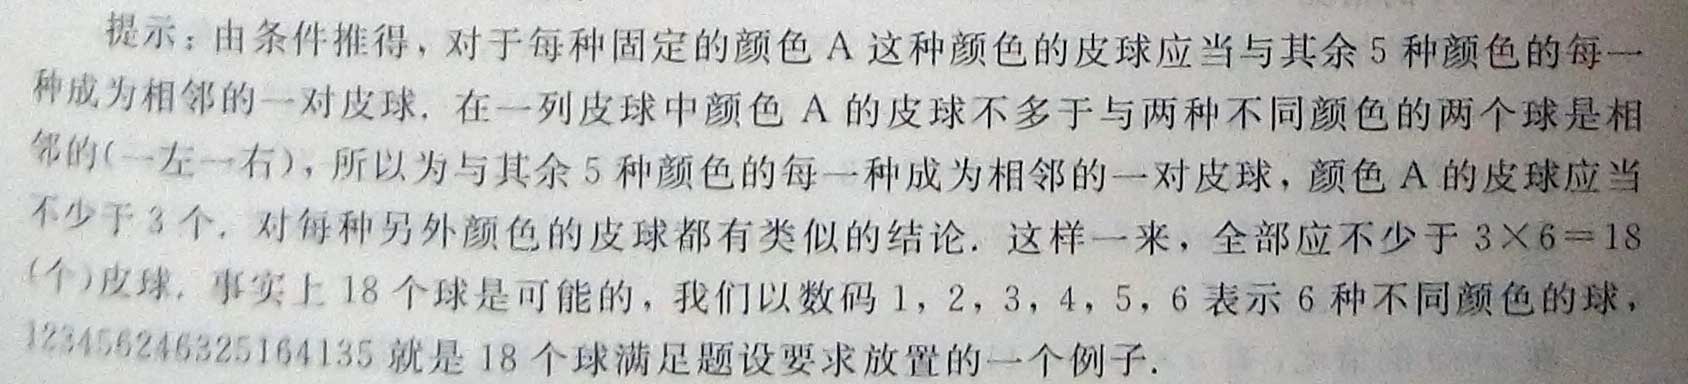 提示：由条件推得，对于每种固定的颜色 A 这种颜色的皮球应当与其余 5 种颜色的每一
种成为相邻的一对皮球. 在一列皮球中颜色 A 的皮球不多于与两种不同颜色的两个球是相
邻的(一左一右)，所以为与其余 5 种颜色的每一种成为相邻的一对皮球，颜色 A 的皮球应当
不少于 3 个. 对每种另外颜色的皮球都有类似的结论. 这样一来，全部应不少于 3×6＝18
(个)皮球. 事实上 18 个球是可能的，我们以数码 1，2，3，4，5，6 表示 6 种不同颜色的球，
123456246325164135 就是 18 个球满足题设要求放置的一个例子.